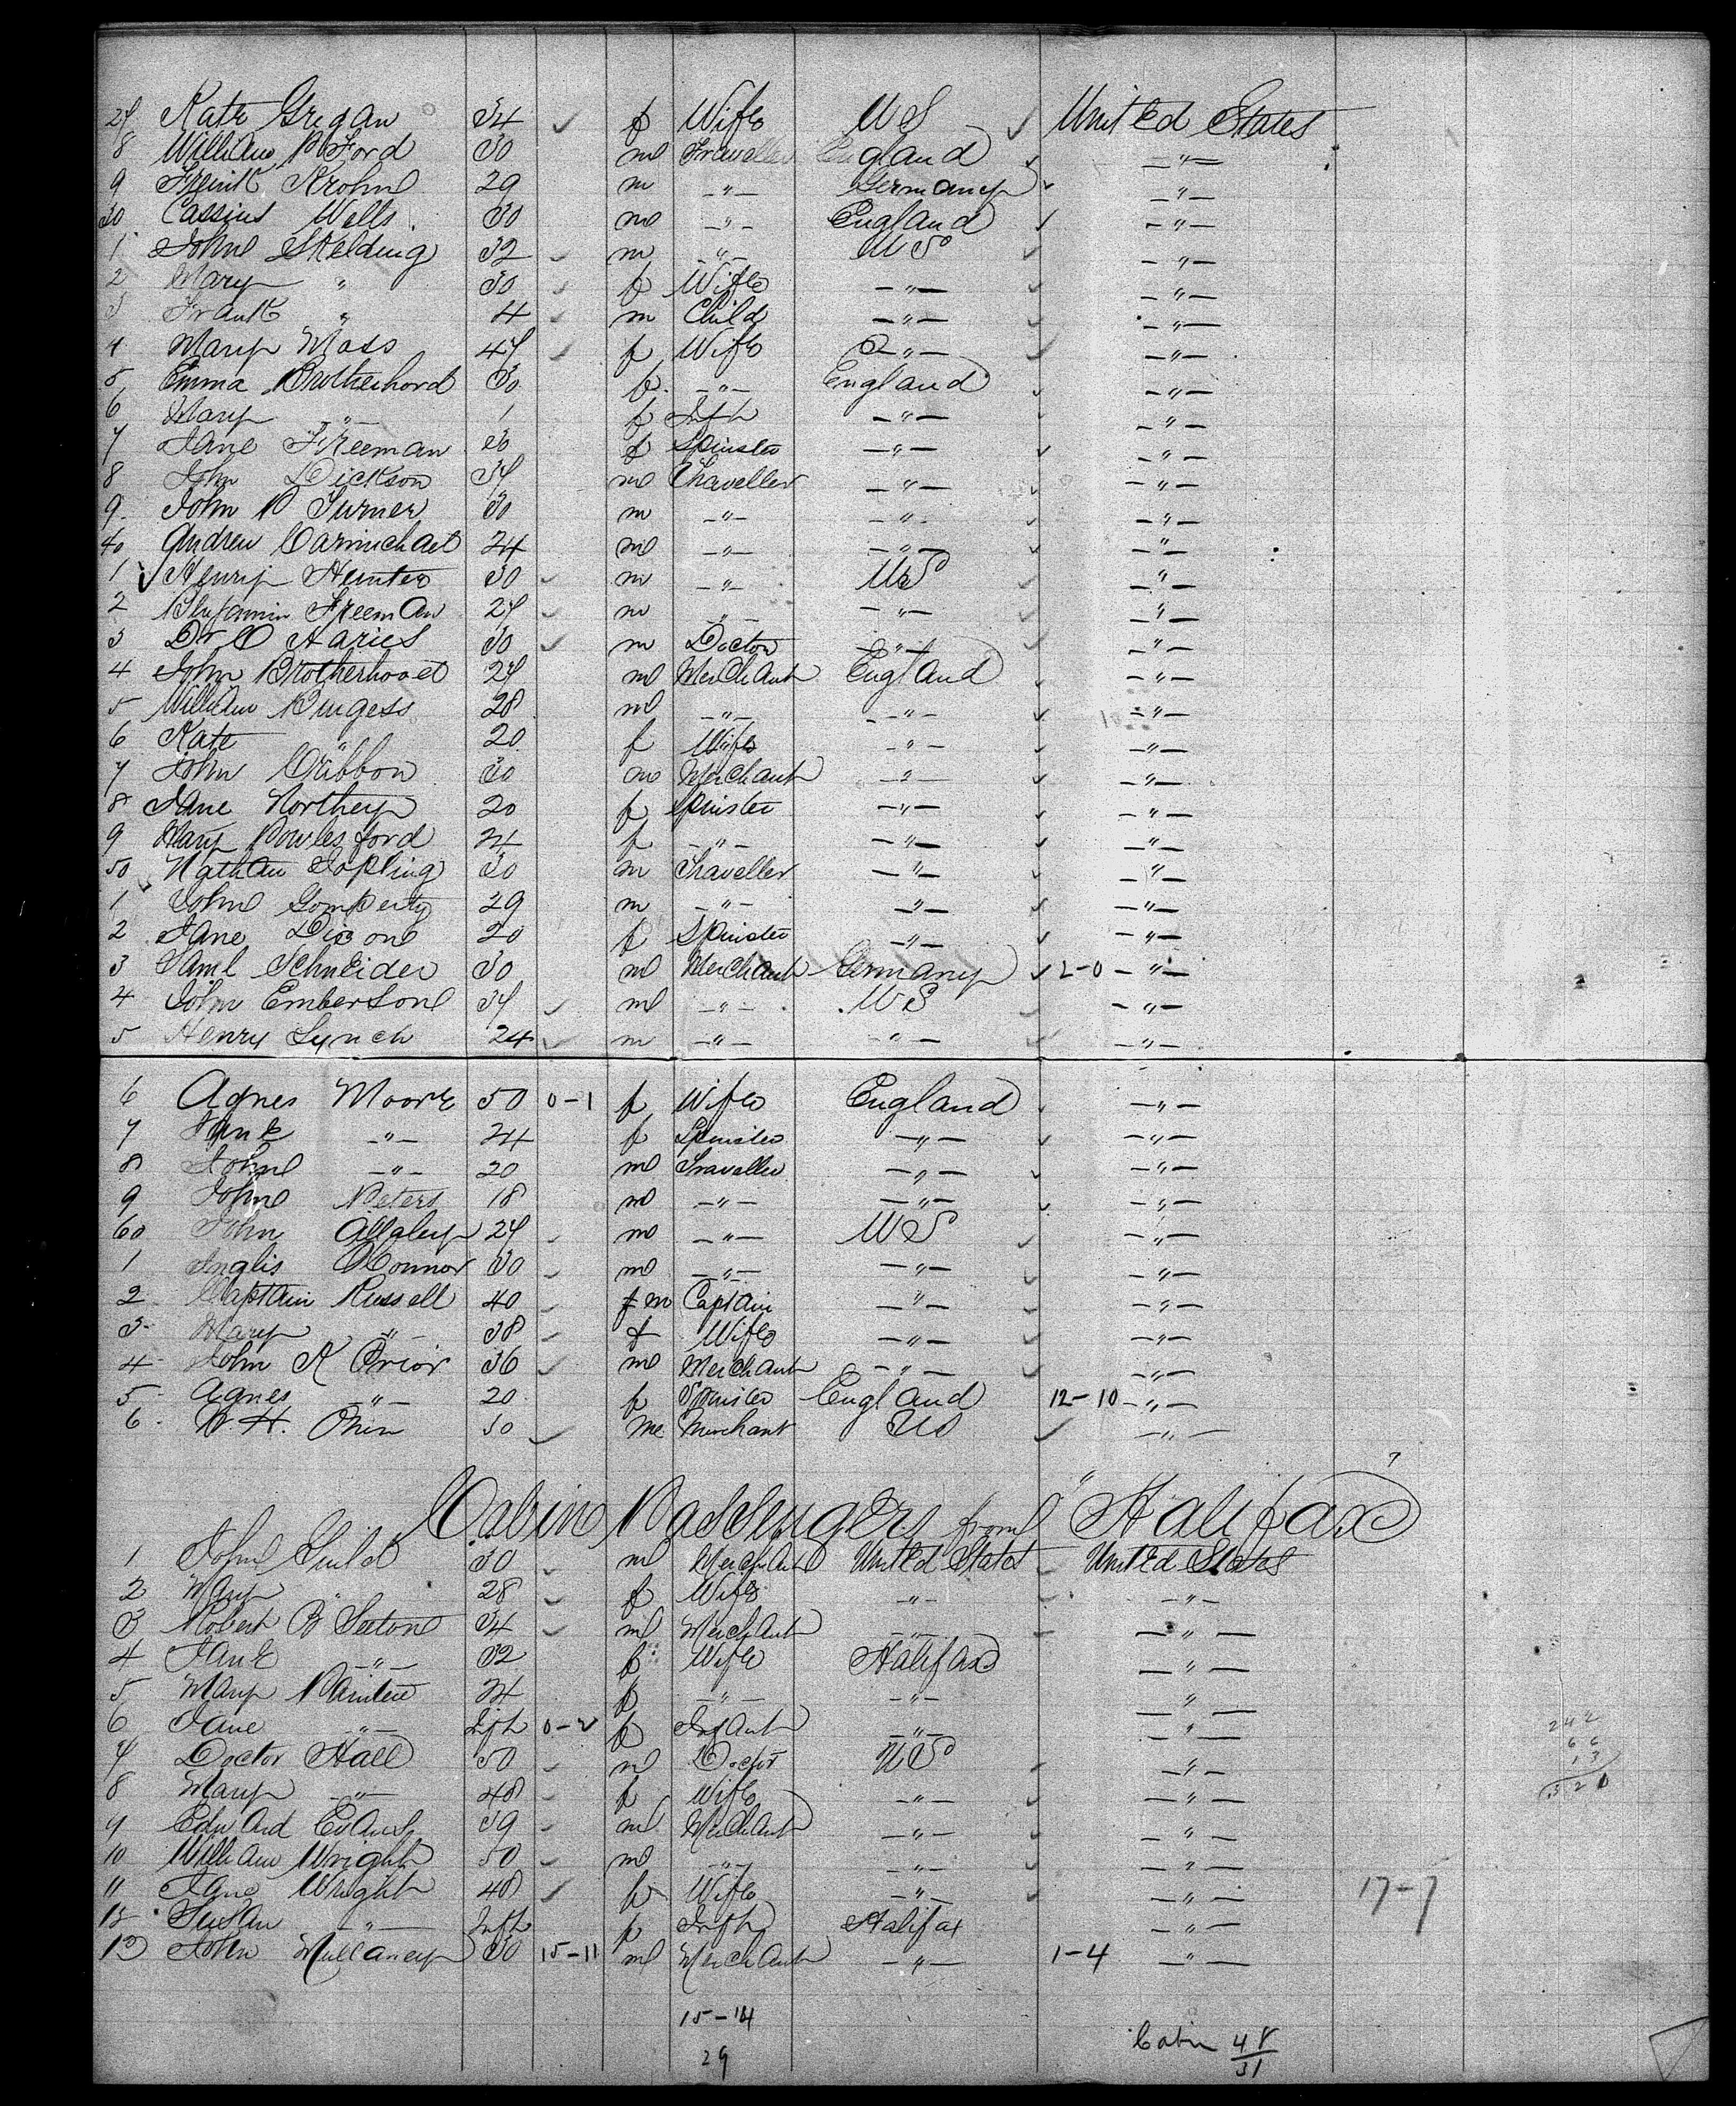 27 Kate Gregan 34 ✓ f Wife U S ✓ United States
8 William B Ford 30 m Traveller England ✓ —"—
9 Frank Krohn 29 m —"— Germany ✓ —"—
30 Cassius Wells 30 m —"— England ✓ —"—
1 John Skelding 32 ✓ m —"— U S ✓ —"—
2 Mary " 30 ✓ f Wife —"— ✓ —"—
3 Frank " 4 ✓ m Child —"— ✓ —"—
4 Mary Moss 47 ✓ f Wife —"— ✓ —"—
5 Emma Brotherhord 30 f —"— England ✓ —"—
6 Mary —"— 1 f Inft —"— ✓ —"—
7 Jane Freeman 20 f Spinster —"— ✓ —"—
8 John Dickson 37 m Traveller —"— ✓ —"—
9 John P Turner 30 m —"— —"— ✓ —"—
40 Andrew Carmichael 24 m —"— —"— ✓ —"—
1 ✓ Henry Hunter 30 ✓ m —"— U S ✓ —"—
2 Benjamin Freeman 27 ✓ m —"— —"— ✓ —"—
3 Dr O Haries 30 ✓ m Doctor —"— ✓ —"—
4 John Brotherhood 27 m Merchant England ✓ —"—
5 William Burgess 28 m —"— —"— ✓ —"—
6 Kate " 20 f Wife —"— ✓ —"—
7 John Gribbon 30 m Merchant —"— ✓ —"—
8 Jane Northey 20 f Spinster —"— ✓ —"—
9 Mary Powlesford 24 f —"— —"— ✓ —"—
50 Nathan Topling 30 m Traveller —"— ✓ —"—
1 John Gomperty 29 m —"— —"— ✓ —"—
2 Jane Dixon 20 f Spinster —"— ✓ —"—
3 Saml Schneider 30 m Merchant Germany ✓ 2-0 —"—
4 John Emberson 37 ✓ m —"— U S ✓ —"—
5 Henry Lynch 24 ✓ m —"— —"— ✓ —"—
6 Agnes Moore 50 0-1 f Wife England ✓ —"—
7 Jane —"— 24 f Spinster —"— ✓ —"—
8 John —"— 20 m Traveller —"— ✓ —"—
9 John Peters 18 m —"— —"— ✓ —"—
60 John Allaley 27 ✓ m —"— U S ✓ —"—
1 Inglis OConnor 30 ✓ m —"— —"— ✓ —"—
2 Captain Russell 40 ✓ m Captain —"— ✓ —"—
3 Mary —"— 38 ✓ f Wife —"— ✓ —"—
4 John K Prior 36 ✓ m Merchant —"— ✓ —"—
5 Agnes —"— 20 f Spinster England 12-10 —"—
6 W. H. 50 ✓ m Merchant US ✓ —"—
Cabin Passengers from "Halifax"
1 John Guild 30 ✓ m Merchant United States ✓ United States
2 Mary " 28 ✓ f Wife —"— ✓ —"—
3 Robert B Seeton 34 ✓ m Merchant —"— —"—
4 Jane —"— 32 f Wife Halifax —"—
5 Mary Painter 24 f —"— —"— —"—
6 Jane —"— Inft 0-2 f Infant —"— —"—
242
66
13
7 Doctor Hall 50 ✓ m Doctor U S ✓ —"—
321
8 Mary —"— 48 ✓ f Wife —"— ✓ —"—
9 Edward Evans 39 ✓ m Merchant —"— ✓ —"—
10 William Wright 50 ✓ m —"— —"— ✓ —"—
11 Jane Wright 48 ✓ f Wife —"— ✓ —"— 17-7
12 Susan —"— Inft f Inft Halifax —"—
13 John Mullaney 30 15-11 m Merchant —"— 1-4 —"—
15-14
Cabin 48
29
31